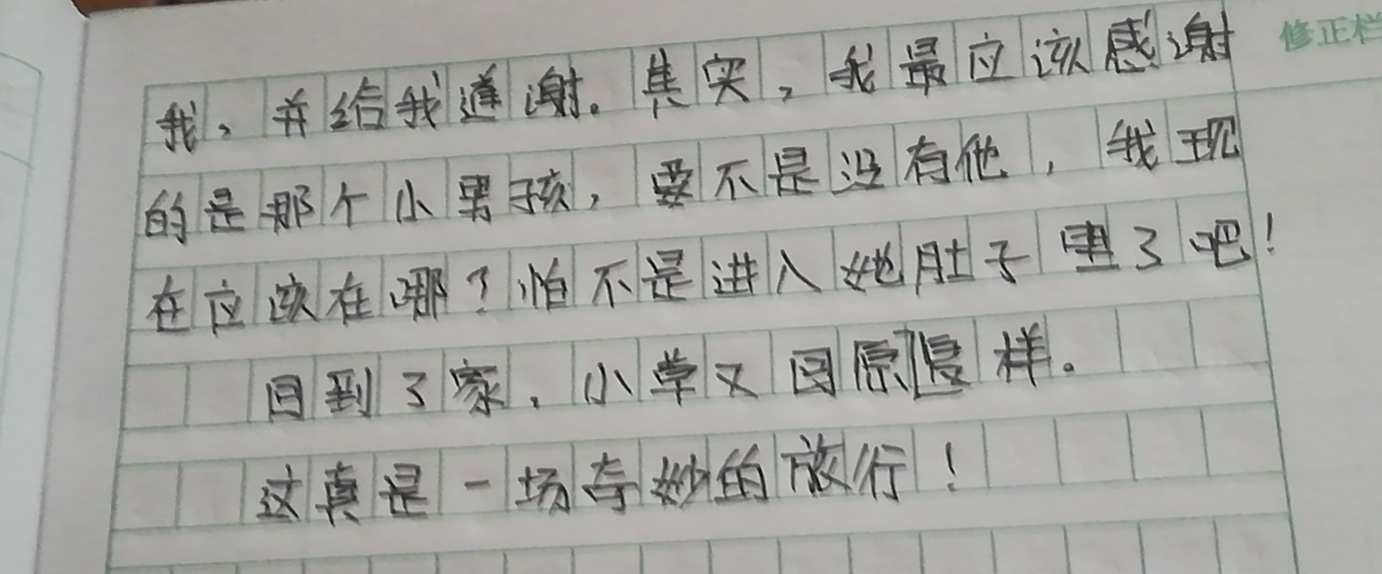 修正栏
我，并给我道谢。其实，我最应该感谢
的是那个小男孩，要不是没有他，我现
在应该在哪？怕不是进入她肚子里了吧！
回到了家，小草又回原復样。
这真是一场奇妙的旅行！